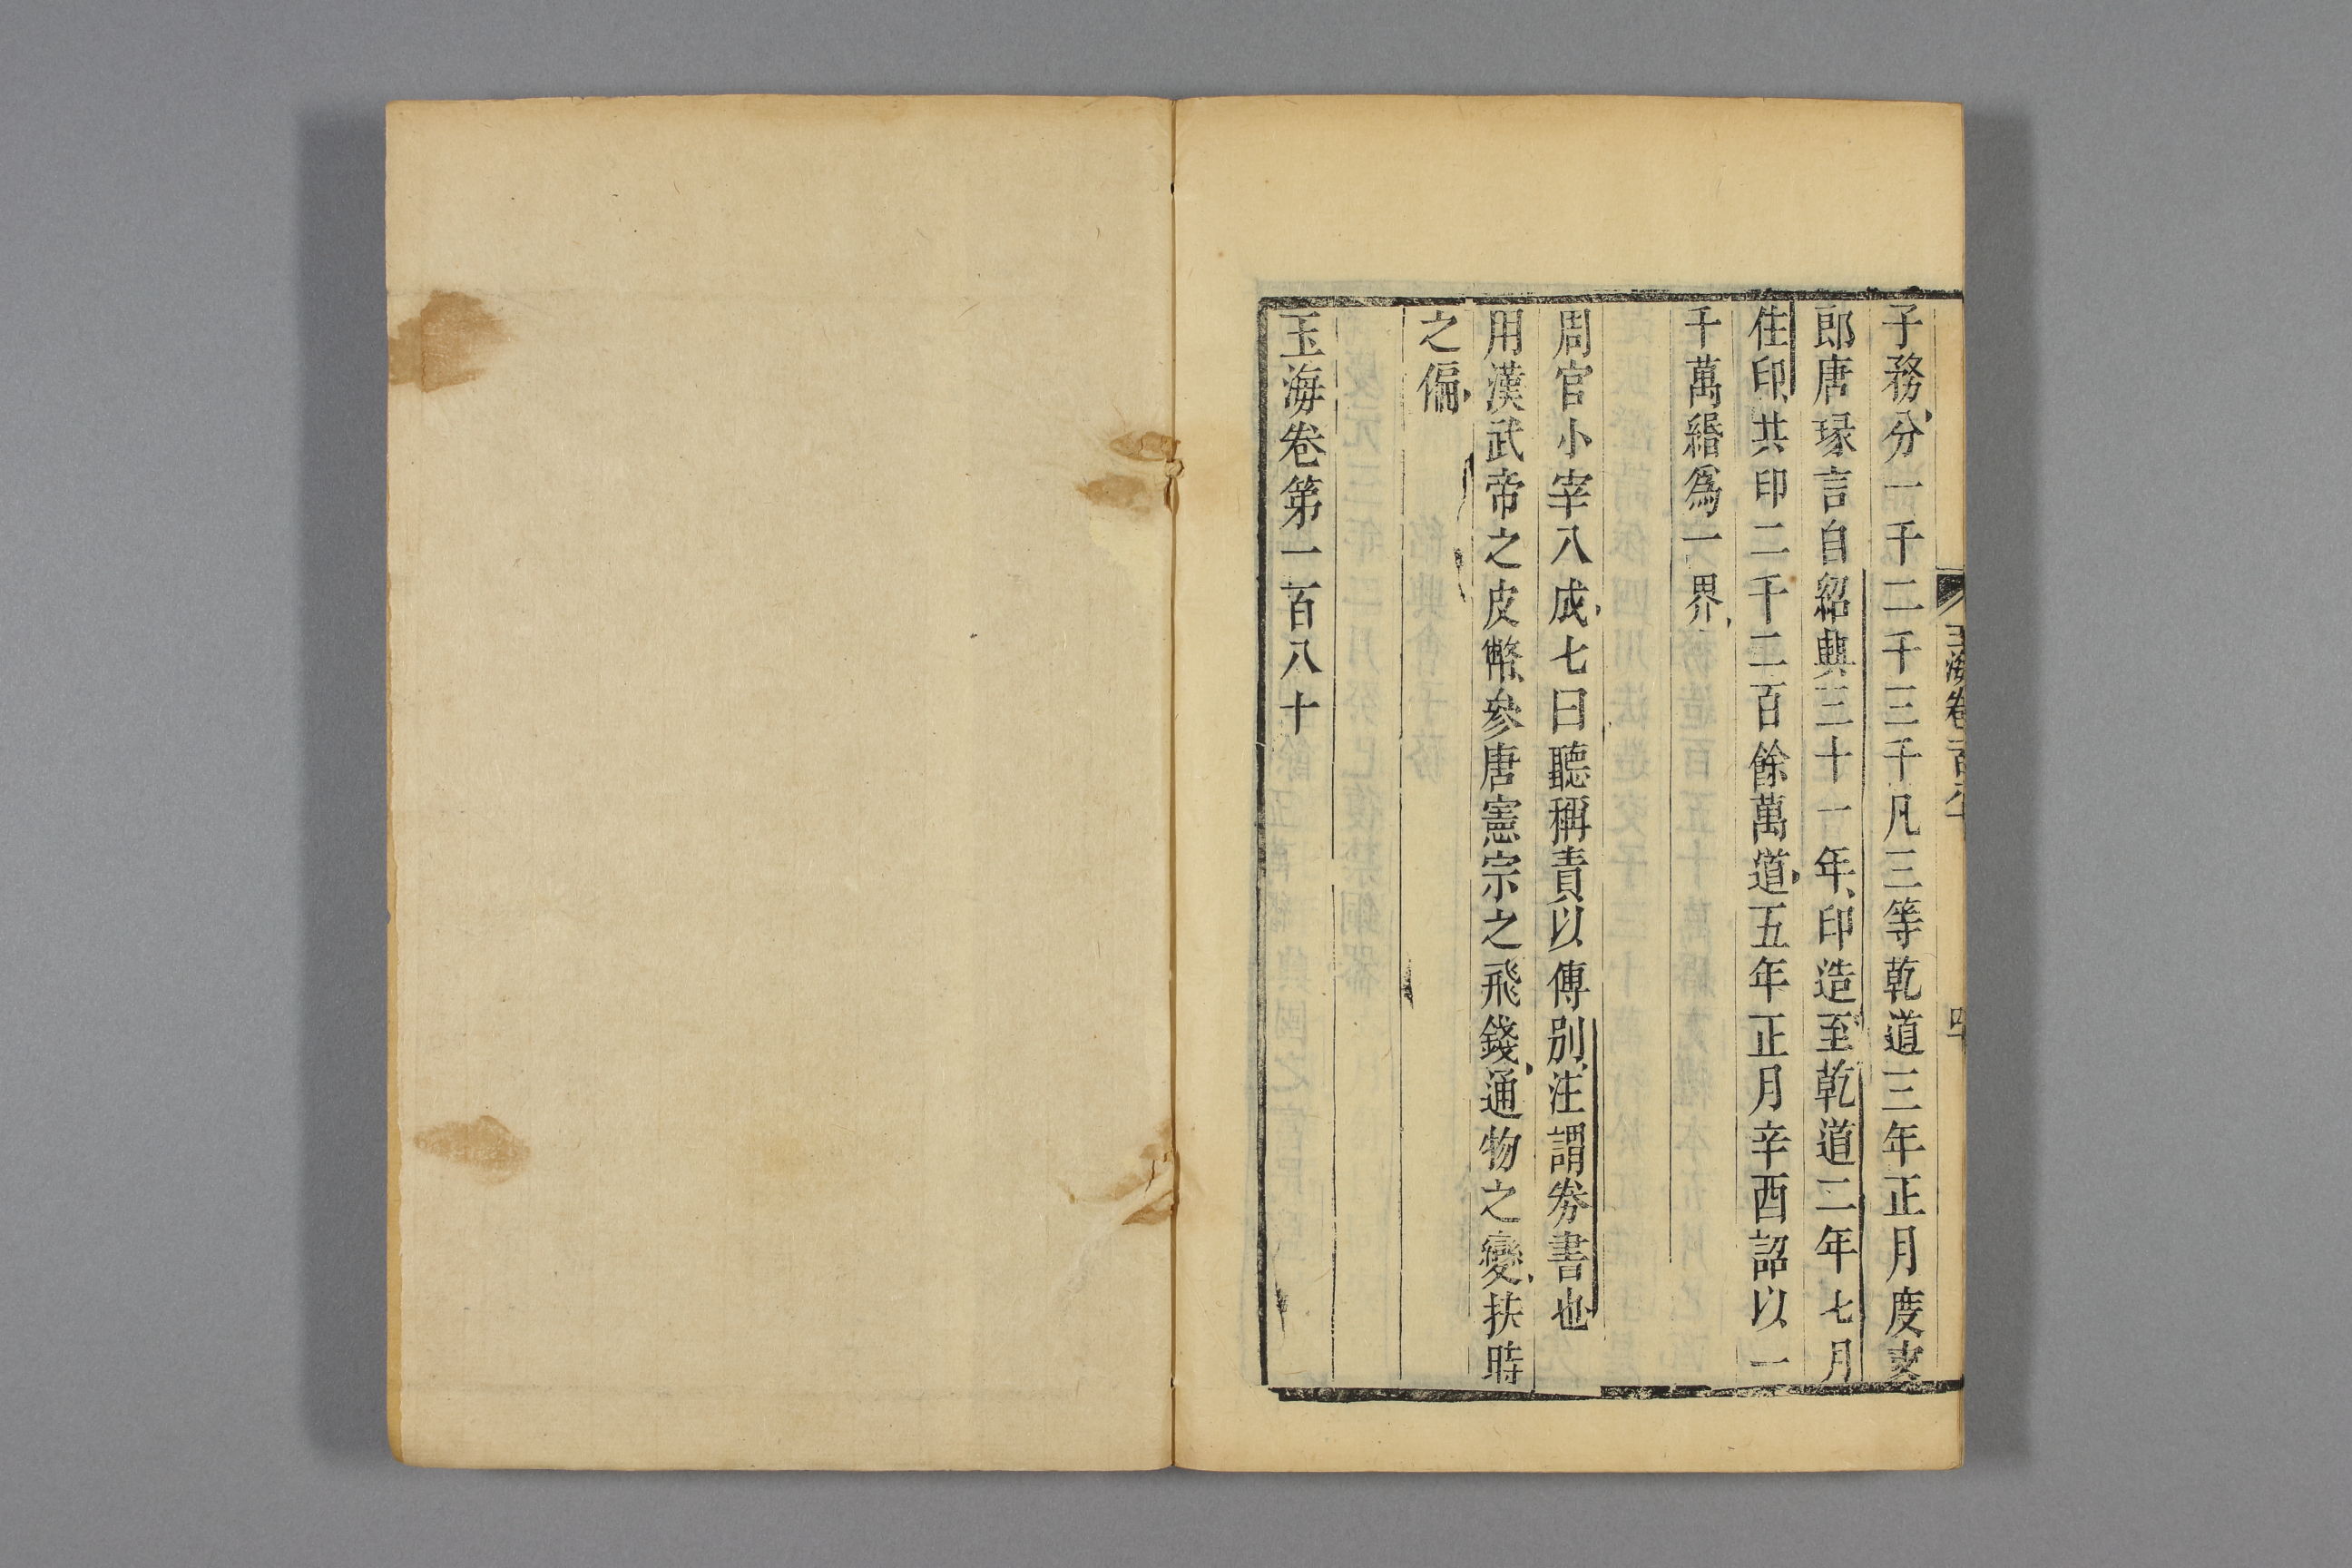 子務分一千二千三千凡三等乾道三年正月度支
郎唐瑑言自紹興三十一年印造至乾道二年七月
住印共印二千二百餘萬道五年正月辛酉詔以一
千萬緡爲一界
周官小宰八成七曰聽稱責以傅別注謂券書也
用漢武帝之皮幣參唐憲宗之飛錢通物之變扶時
之偏
玉海卷第一百八十